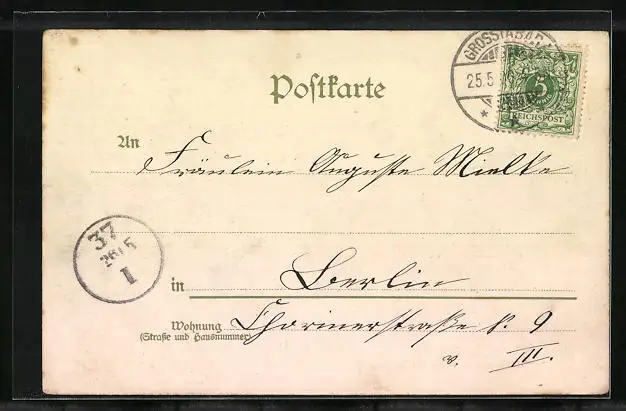 GROSSTABARZ
25.5
5
REICHSPOST
Postkarte
An Fräulein Auguste Mielke
37
26/5
I
in Berlin
Wohnung Chorinerstraße № 9
(Straße und Hausnummer)
v. III.